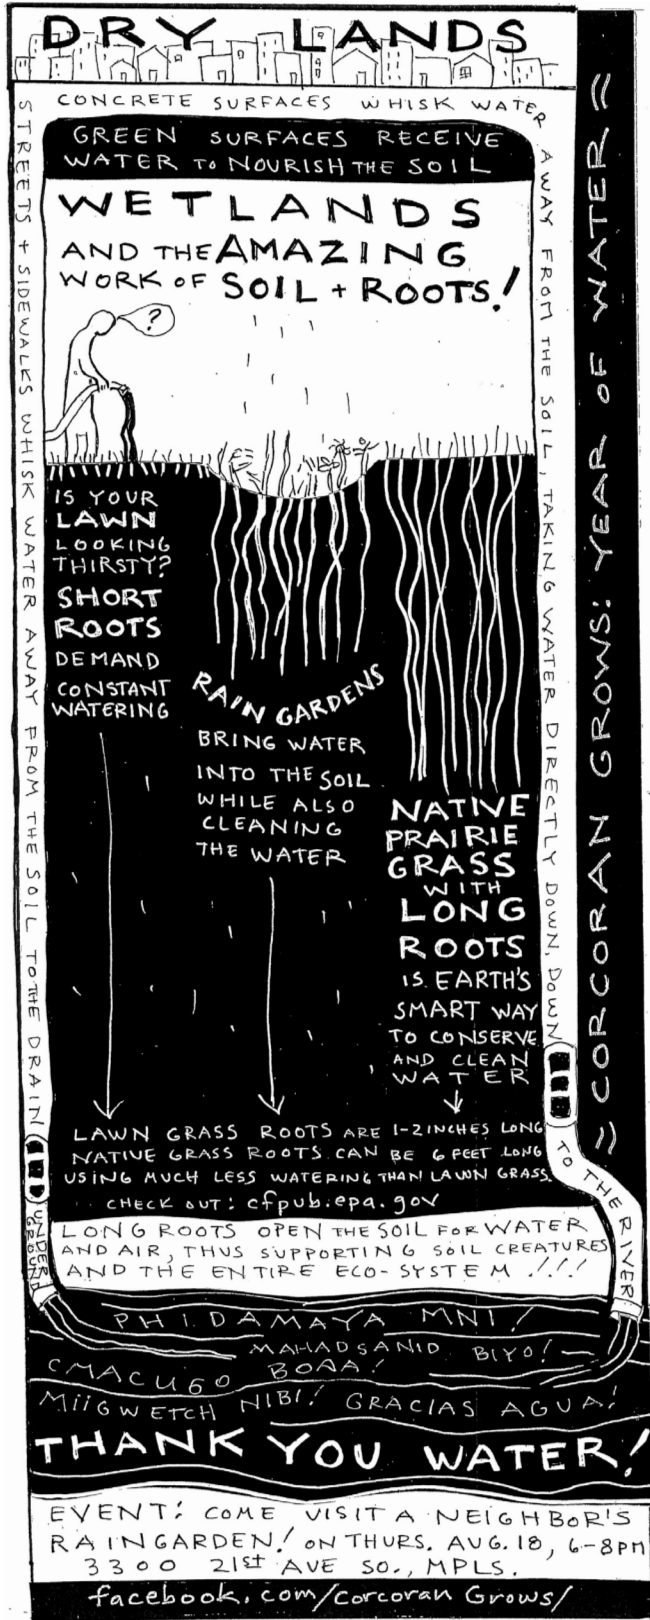 DRY LANDS
CONCRETE SURFACES WHISK WATER AWAY FROM THE SOIL, TAKING WATER DIRECTLY DOWN, DOWN TO THE RIVER
STREETS + SIDEWALKS WHISK WATER AWAY FROM THE SOIL TO THE DRAIN
UNDER
GROUND
GREEN SURFACES RECEIVE
WATER TO NOURISH THE SOIL
WETLANDS
AND THE AMAZING
WORK OF SOIL + ROOTS!
?
IS YOUR
LAWN
LOOKING
THIRSTY?
SHORT
ROOTS
DEMAND
CONSTANT
WATERING
RAIN GARDENS
BRING WATER
INTO THE SOIL
WHILE ALSO
CLEANING
THE WATER
NATIVE
PRAIRIE
GRASS
WITH
LONG
ROOTS
IS EARTH'S
SMART WAY
TO CONSERVE
AND CLEAN
WATER
LAWN GRASS ROOTS ARE 1-2 INCHES LONG
NATIVE GRASS ROOTS CAN BE 6 FEET LONG
USING MUCH LESS WATERING THAN LAWN GRASS.
CHECK OUT: cfpub.epa.gov
LONG ROOTS OPEN THE SOIL FOR WATER
AND AIR, THUS SUPPORTING SOIL CREATURES
AND THE ENTIRE ECO-SYSTEM !!!!
PHIDAMAYA MNI!
MAHADSANID BIYO!
СПАСИБО ВОДА!
MIIGWETCH NIBI! GRACIAS AGUA!
THANK YOU WATER!
EVENT: COME VISIT A NEIGHBOR'S
RAINGARDEN! ON THURS. AUG. 18, 6-8PM
3300 21st AVE SO., MPLS.
facebook.com/corcoran Grows/
= CORCORAN GROWS: YEAR OF WATER =